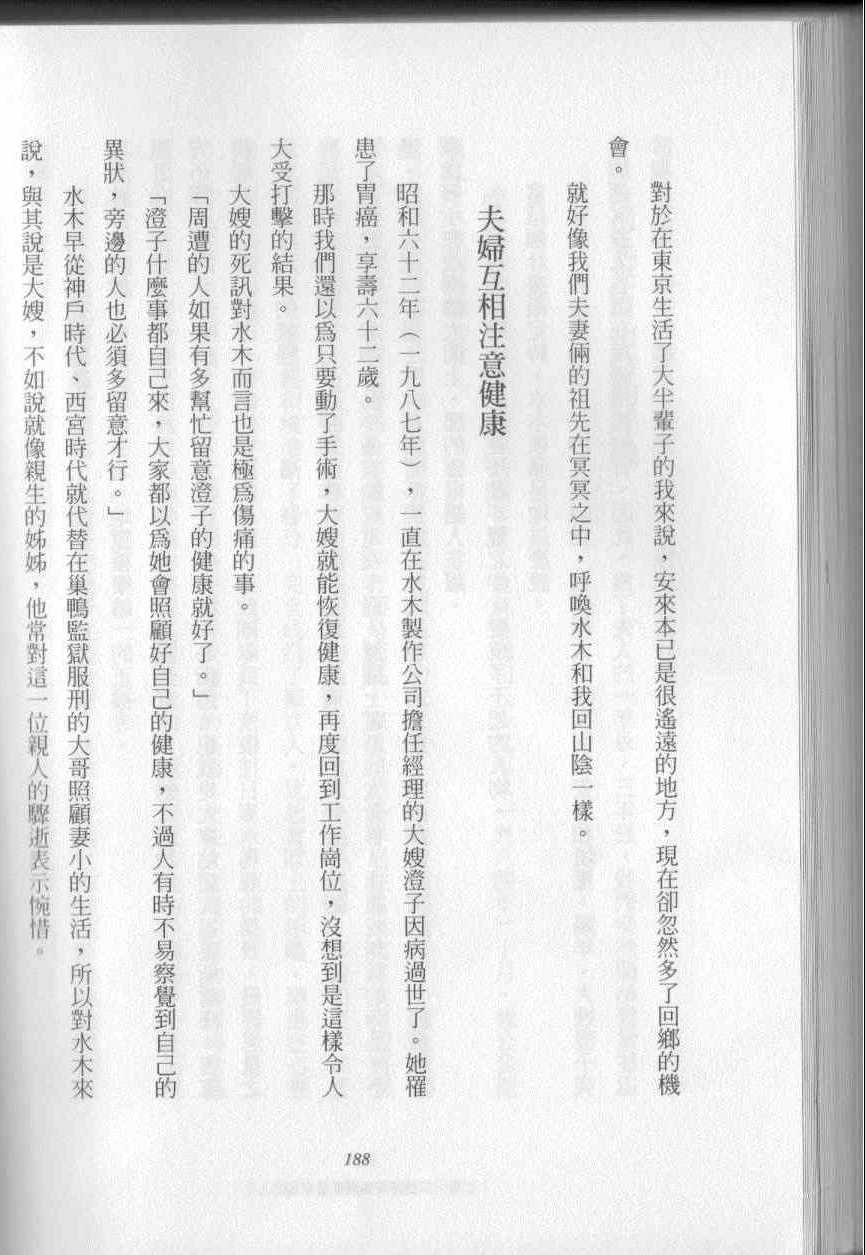 對於在東京生活了大半輩子的我來說，安來本已是很遙遠的地方，現在卻忽然多了回鄉的機
會。
就好像我們夫妻倆的祖先在冥冥之中，呼喚水木和我回山陰一樣。
夫婦互相注意健康
昭和六十二年（一九八七年），一直在水木製作公司擔任經理的大嫂澄子因病過世了。她罹
患了胃癌，享壽六十二歲。
那時我們還以爲只要動了手術，大嫂就能恢復健康，再度回到工作崗位，沒想到是這樣令人
大受打擊的結果。
大嫂的死訊對水木而言也是極爲傷痛的事。
「周遭的人如果有多幫忙留意澄子的健康就好了。」
「澄子什麼事都自己來，大家都以爲她會照顧好自己的健康，不過人有時不易察覺到自己的
異狀，旁邊的人也必須多留意才行。」
水木早從神戶時代、西宮時代就代替在巢鴨監獄服刑的大哥照顧妻小的生活，所以對水木來
說，與其說是大嫂，不如說就像親生的姊姊，他常對這一位親人的驟逝表示惋惜。
188